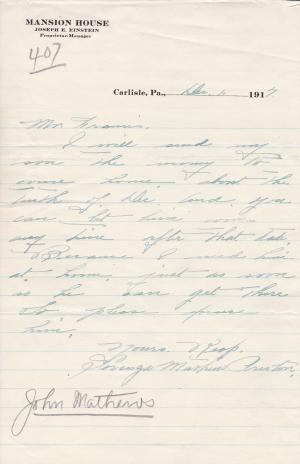 MANSION HOUSE
JOSEPH E. EINSTEIN
Proprietor-Manager
407
Carlisle, Pa., Dec. 1, 1917.
Mr. Francis.
I will send my
son the money to
come home, about the
tenth of Dec. and, you
can let him come
any time after that date,
Because I need him
at home, just as soon
as he can get there
So please
him,
Yours. Resp.
John Mathews